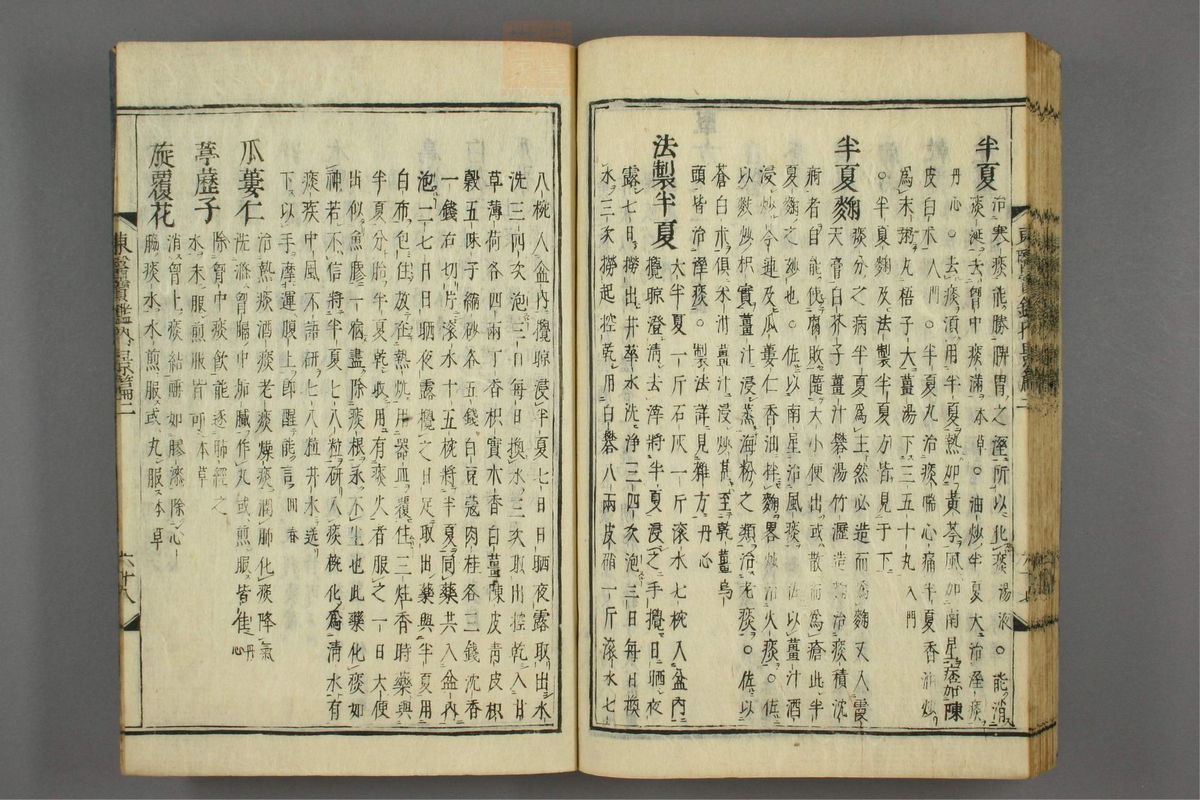 半夏 治寒痰能勝脾胃之濕所以化痰湯液○能消
痰涎去胷中痰滿本草○油炒半夏大治濕痰
丹心○去痰須用半夏熱加黃芩風加南星痞加陳
皮白朮入門○半夏丸治痰喘心痛半夏香油炒
爲末粥丸梧子大薑湯下三五十丸入門
○半夏麴及法製半夏方皆見于下
半夏麴 痰分之病半夏爲主然必造而爲麴又入霞
天膏白芥子薑汁礬湯竹瀝造麴治痰積沈
痾者自能使腐敗隨大小便出或散而爲瘡此半
夏麴之玅也○佐以南星治風痰以薑汁酒
浸炒芩連及瓜蔞仁香油拌麴畧炒治火痰○佐
以麩炒枳實薑汁浸蒸海粉之類治老痰○佐以
蒼白朮俱米泔薑汁浸炒甚至乾薑烏
頭皆治濕痰○製法詳見雜方丹心
法製半夏 大半夏一斤石灰一斤滚水七椀入盆內
攪晾澄清去滓將半夏浸之手攪日晒夜
露七日撈出井華水洗淨三四次泡三日每日換
水三次撈起控乾用白礬八兩皮硝一斤滚水七
八椀入盆內攪晾浸半夏七日日晒夜露取出水
洗三四次泡三日每日換水三次取出控乾入甘
草薄荷各四兩丁香枳實木香白薑陳皮靑皮枳
殼五味子縮砂各五錢白豆蔻肉桂各三錢沈香
一錢右切片滚水十五椀將半夏同藥共入盆內
泡二七日日晒夜露攪之日足取出藥與半夏用
白布包住放在熱炕用器皿覆住三炷香時藥與
半夏分胎半夏乾收用有痰火者服之一日大便
出似魚膠一宿盡除痰根永不生也此藥化痰如
神若不信將半夏七八粒硏入痰椀化爲清水有
痰疾中風不語硏七八粒井水送
下以手摩運腹上卽醒能言回春
瓜蔞仁 治熱痰酒痰老痰燥痰潤肺化痰降氣
洗滌胷膈中垢膩作丸或煎服皆佳丹心
葶藶子 除胷中痰飮能逐肺經之
水末服煎服皆可本草
旋覆花 消胷上痰結唾如膠漆除心
膈痰水水煎服或丸服本草
東醫寶鑑內景篇二
六十八